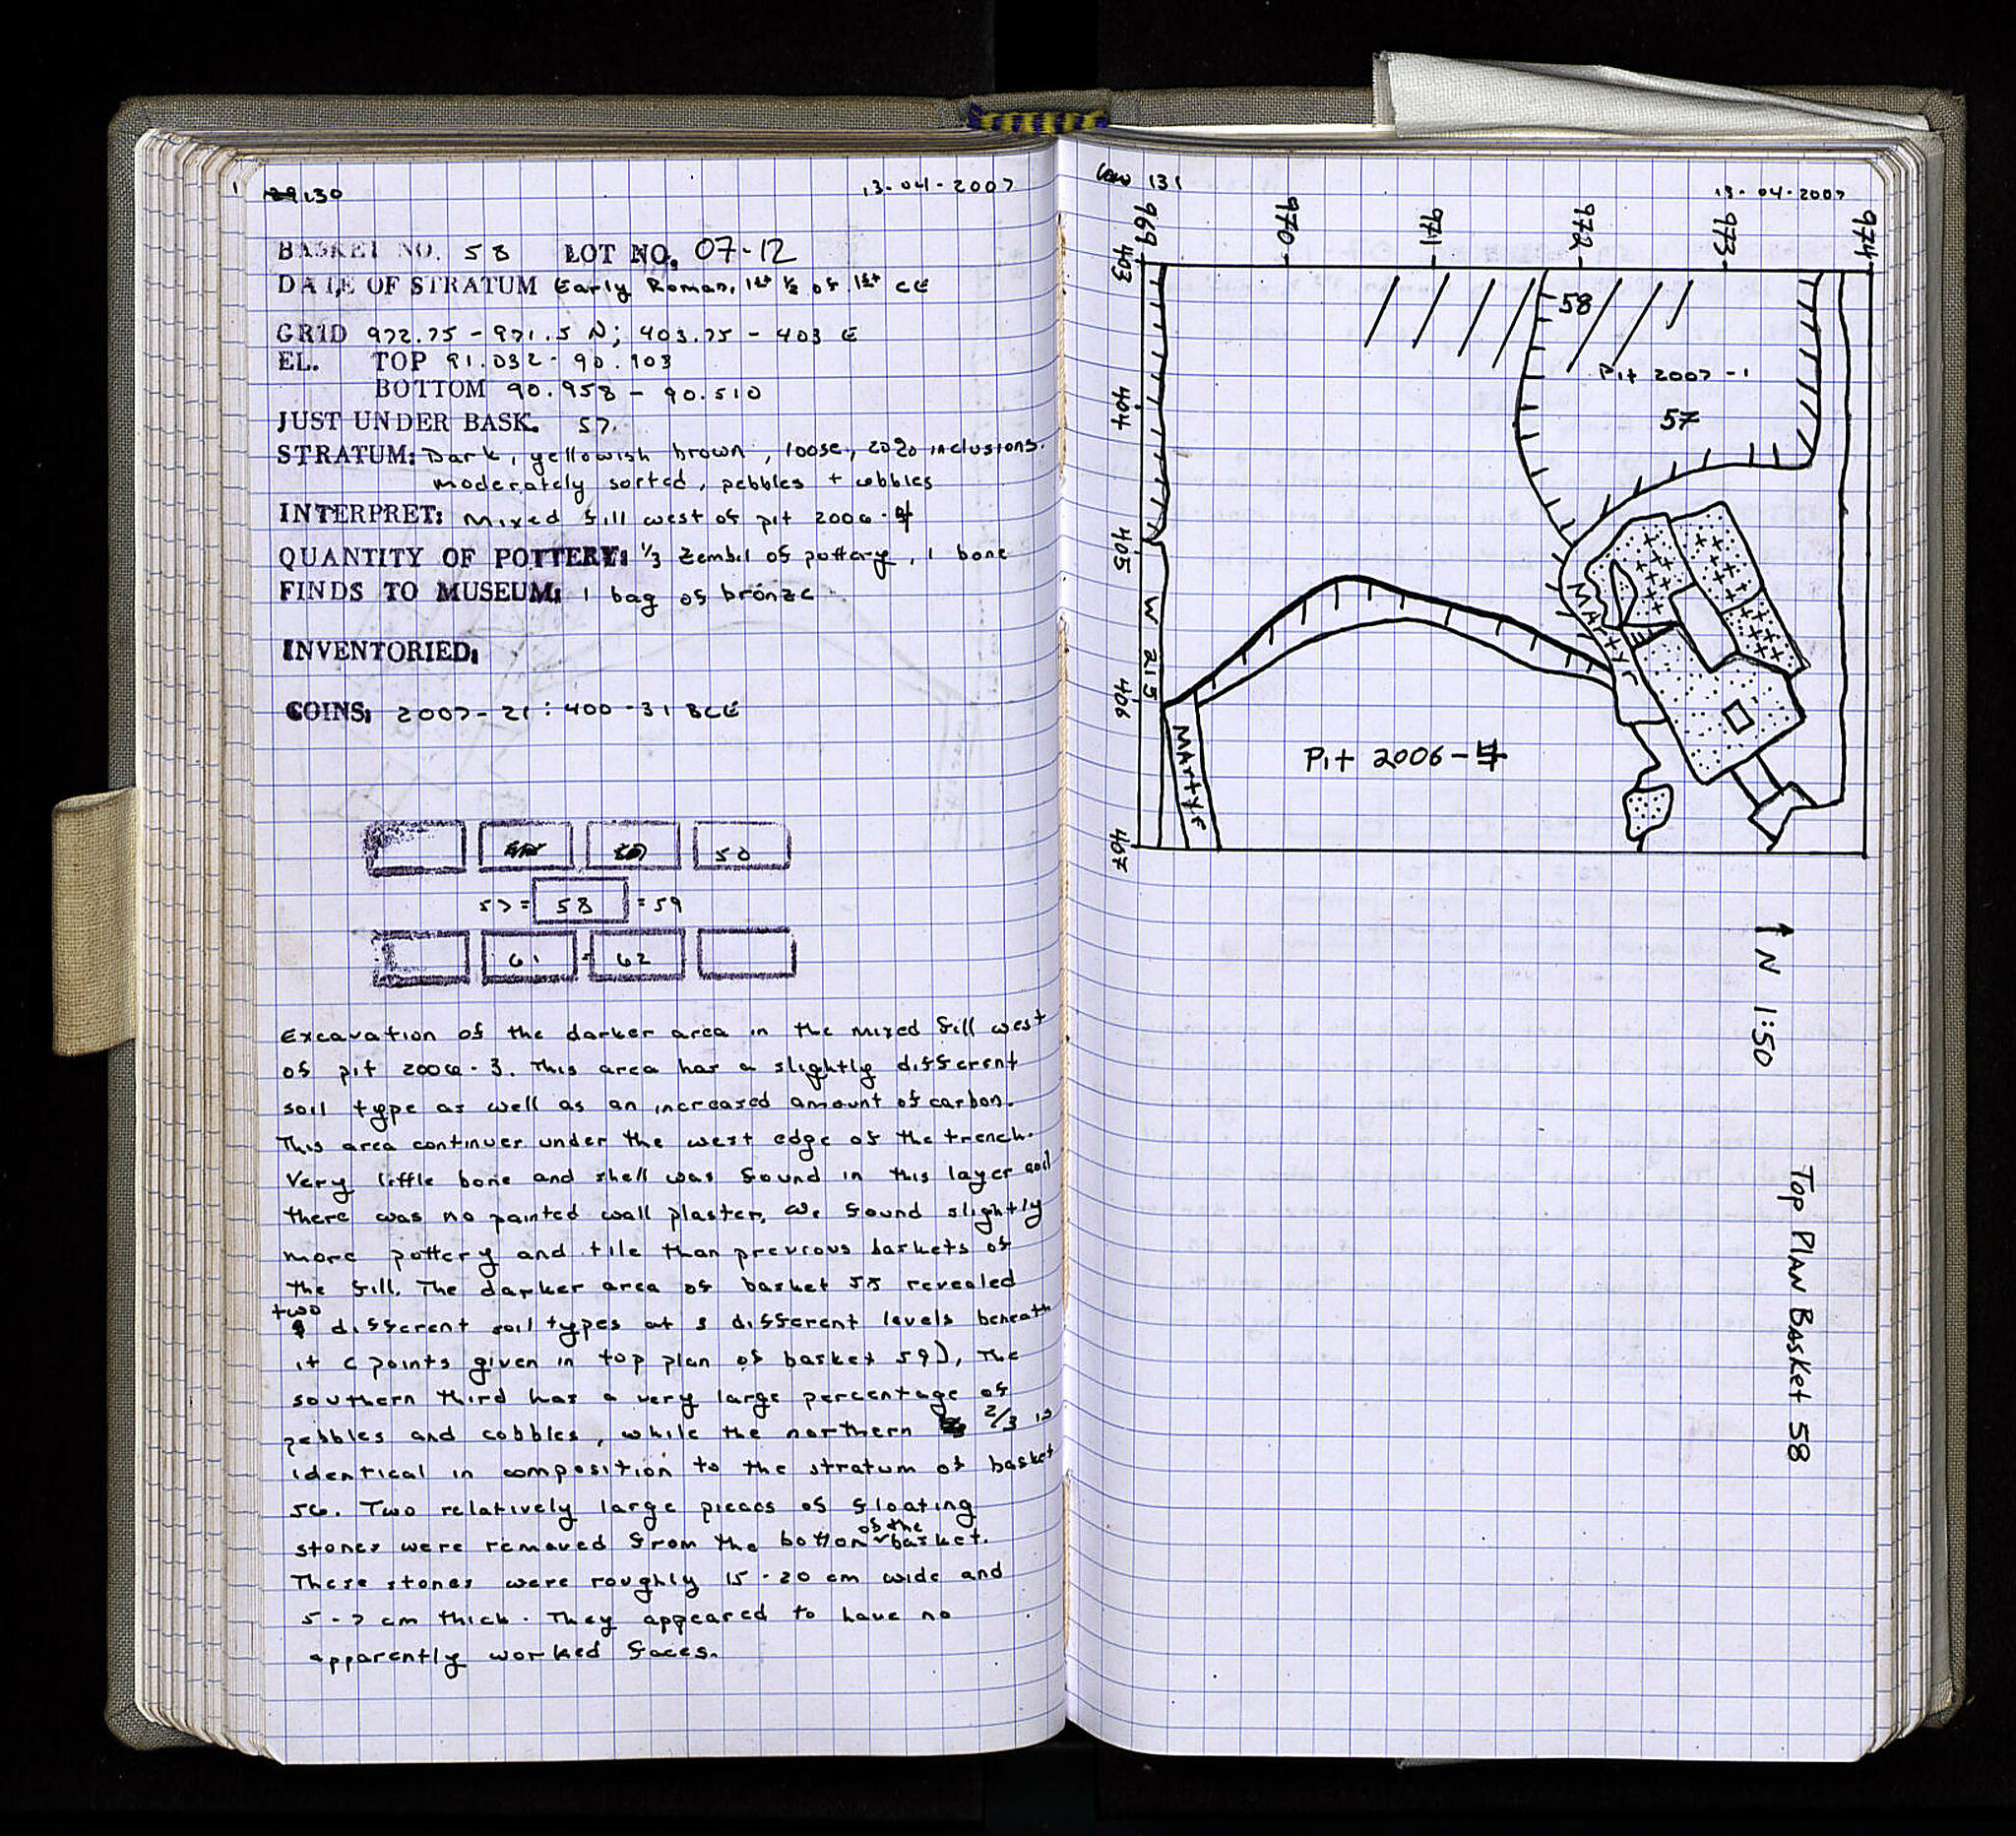 130
13-04-2007
BASKET NO. 58 LOT NO. 07-12
DATE OF STRATUM Early Roman, 1st ½ of 1st CE
GRID 972.75 - 971.5 N; 403.75 - 403 E
EL. TOP 91.032 - 90.103
BOTTOM 90.958 - 90.510
JUST UNDER BASK. 57.
STRATUM: Dark, yellowish brown, loose, 20% inclusions.
moderately sorted, pebbles + cobbles
INTERPRET: Mixed fill west of pit 2006-4
QUANTITY OF POTTERY: 1/3 zembil of pottery, 1 bone
FINDS TO MUSEUM: 1 bag of bronze
INVENTORIED:
COINS: 2007-21: 400-31 BCE
50
57= 58 =59
61 = 62
Excavation of the darker area in the mixed fill west
of pit 2006-3. This area has a slightly different
soil type as well as an increased amount of carbon.
This area continues under the west edge of the trench.
Very little bone and shell was found in this layer and
there was no painted wall plaster. We found slightly
more pottery and tile than previous baskets of
the fill. The darker area of basket 58 revealed
two different soil types at 3 different levels beneath
it (points given in top plan of basket 59). The
southern third has a very large percentage of
pebbles and cobbles, while the northern 2/3 is
identical in composition to the stratum of basket
56. Two relatively large pieces of floating
stones were removed from the bottom of the basket.
These stones were roughly 15-20 cm wide and
5-7 cm thick. They appeared to have no
apparently worked faces.
131
13-04-2007
969 970 971 972 973 974
403
404
405
406
407
58
Pit 2007-1
57
Martyr
W 215
Martyr
Pit 2006-4
N 1:50
Top PLAN Basket 58